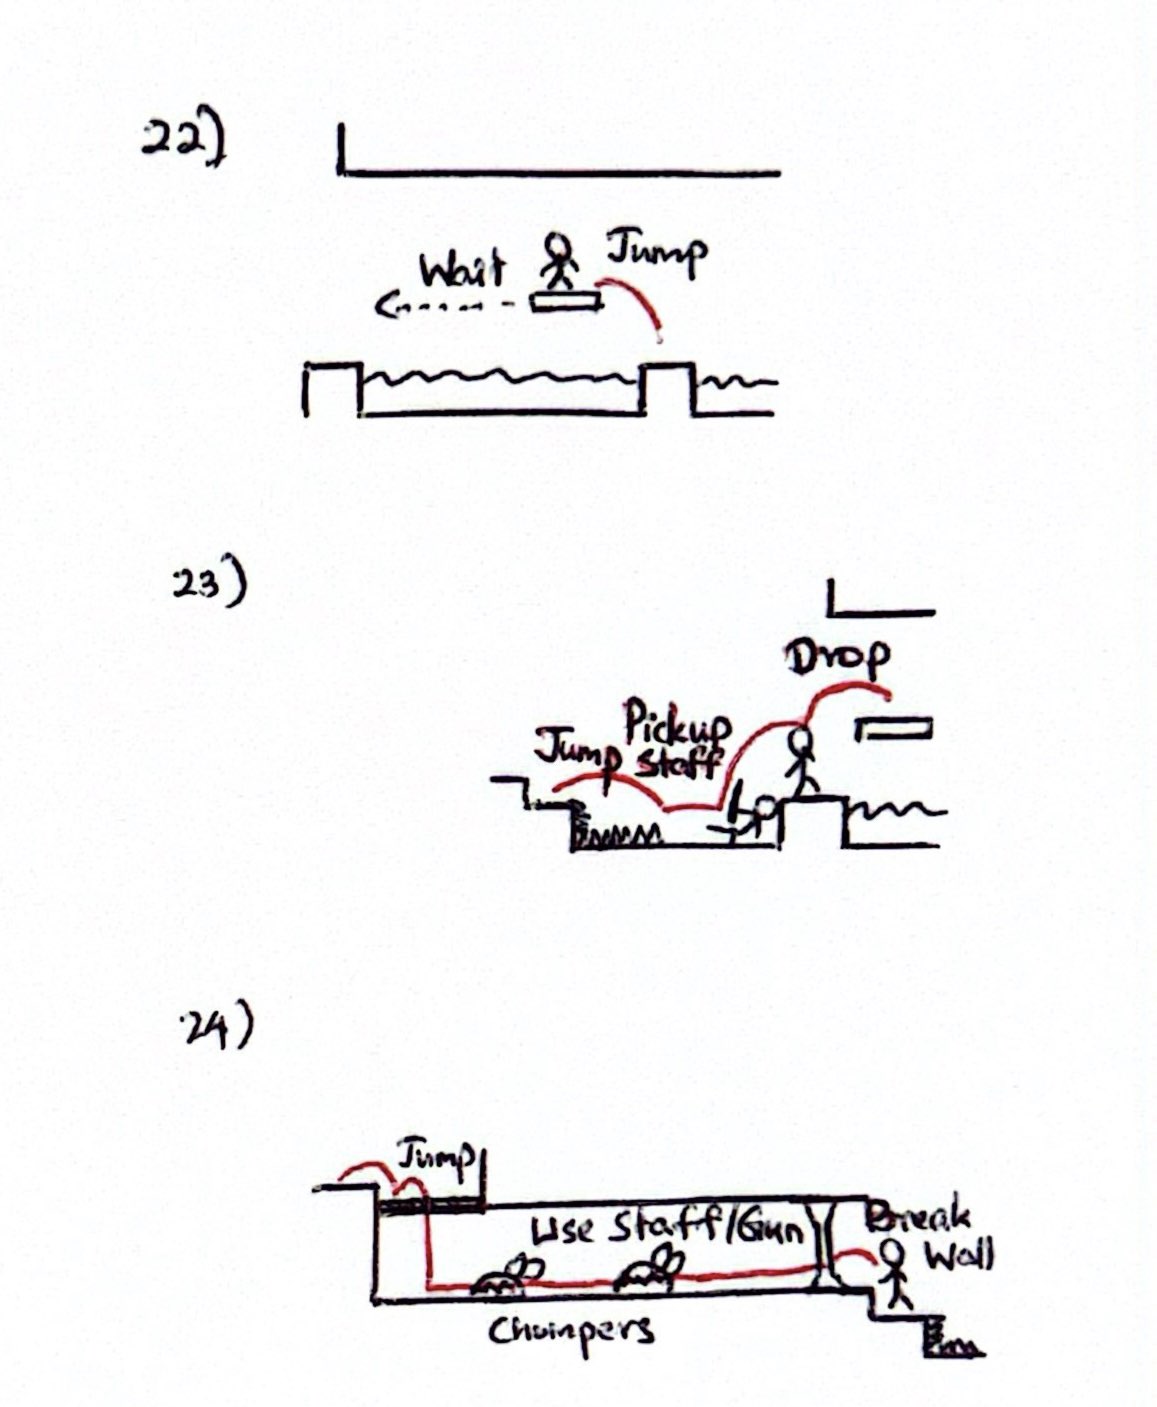 22)
Wait Jump
23)
Drop
Pickup
Jump Staff
24)
Jump
Use Staff/Gun Break
Wall
Chompers